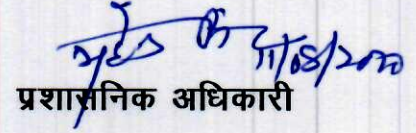 11/08/2020
प्रशासनिक अधिकारी